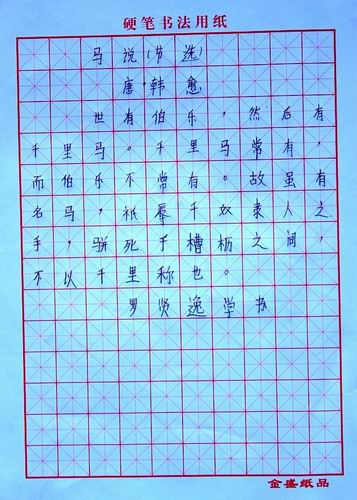 硬笔书法用纸
马说(节选)
唐·韩愈
世有伯乐,然后有
千里马。千里马常有,
而伯乐不常有。故虽有
名马,祇辱于奴隶人之
手,骈死于槽枥之间,
不以千里称也。
罗贤逸学书
金盛纸品